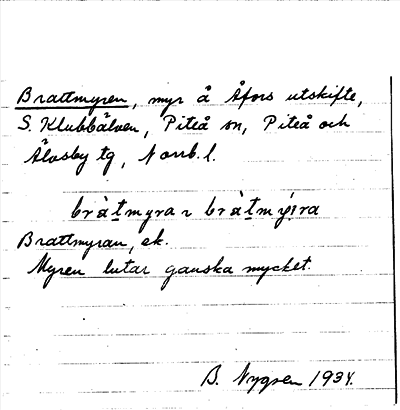 Brattmyren, myr å Åfors utskifte,
S. Klubbälven, Piteå sn, Piteå och
Älvsby tg, Norrb. l.
bràt̲myra ɿ bràt̲mýra
Brattmyran, ek.
Myren lutar ganska mycket.
B. Nygren 1934.